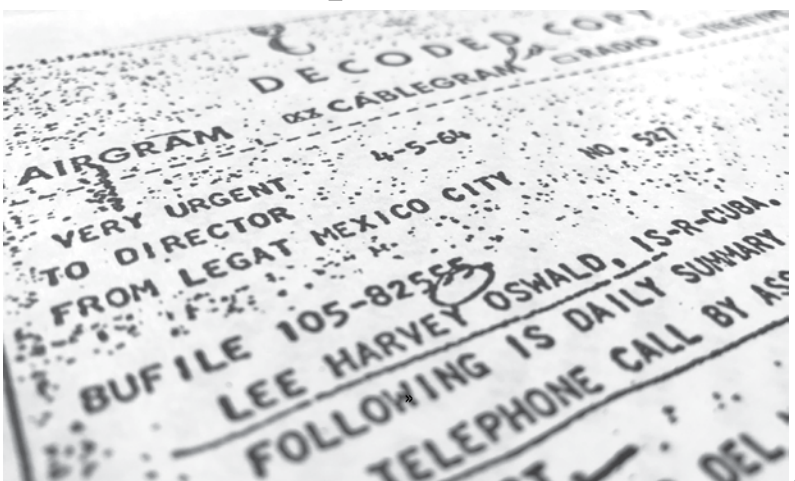 DECODED COPY
AIRGRAM xx CABLEGRAM RADIO
4-5-64 NO. 527
VERY URGENT
TO DIRECTOR
FROM LEGAT MEXICO CITY
BUFILE 105-82555
LEE HARVEY OSWALD, IS-R-CUBA.
FOLLOWING IS DAILY SUMMARY
»
TELEPHONE CALL BY
DEL